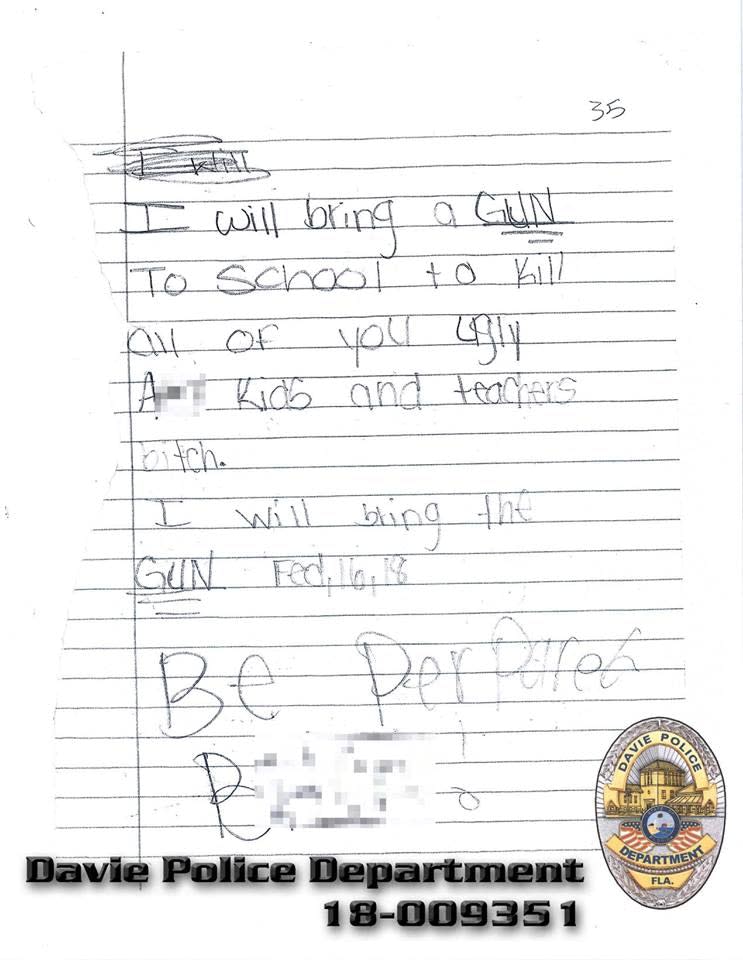 35
I kill
I will bring a GUN
To School to kill
all of you ugly
A kids and teachers
bitch.
I will bring the
GUN Fed,16,18
Be Perpared
B
DAVIE POLICE
DEPARTMENT
FLA.
Davie Police Department
18-009351